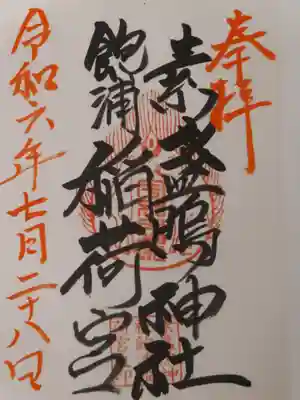 奉拝
素盞鳴神社
飽浦稲荷宮
令和六年七月二十八日